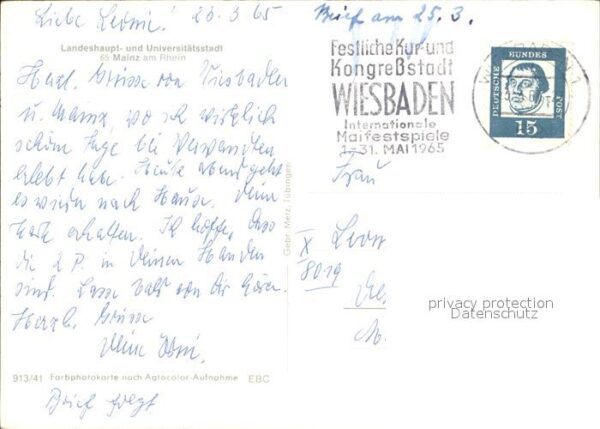 Liebe Leonie! 23.3.65
Brief am 25.3.
Landeshaupt- und Universitätsstadt
65 Mainz am Rhein
Herzl. Grüsse von Wiesbaden
u. Mainz, wo ich wirklich
schöne Tage bei Verwandten
erlebt habe. Heute abend geht
es wieder nach Hause. Deine
Karte erhalten. Ich hoffe, dass
die 2 P. in Deinen Händen
sind. Lasse bald von Dir hören.
Herzl. Grüsse
Deine
913/41 Farbphotokarte nach Agfacolor-Aufnahme EBC
Brief folgt
Gebr. Metz, Tübingen
Festliche Kur- und
Kongreßstadt
WIESBADEN
Internationale
Maifestspiele
1.-31. MAI 1965
WIESBADEN 1
DEUTSCHE BUNDESPOST
15
Frau
X
8019
privacy protection
Datenschutz